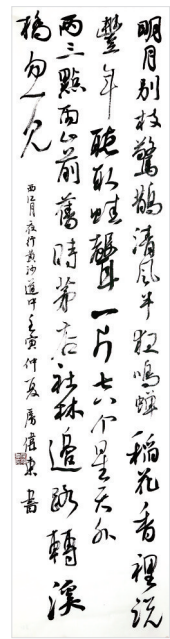 明月別枝驚鵲清風半夜鳴蟬稻花香裡説
豐年聽取蛙聲一片七八个星天外
兩三點雨山前舊時茅店社林邊路轉溪
橋忽見
西江月夜行黄沙道中壬寅仲夏偉東書